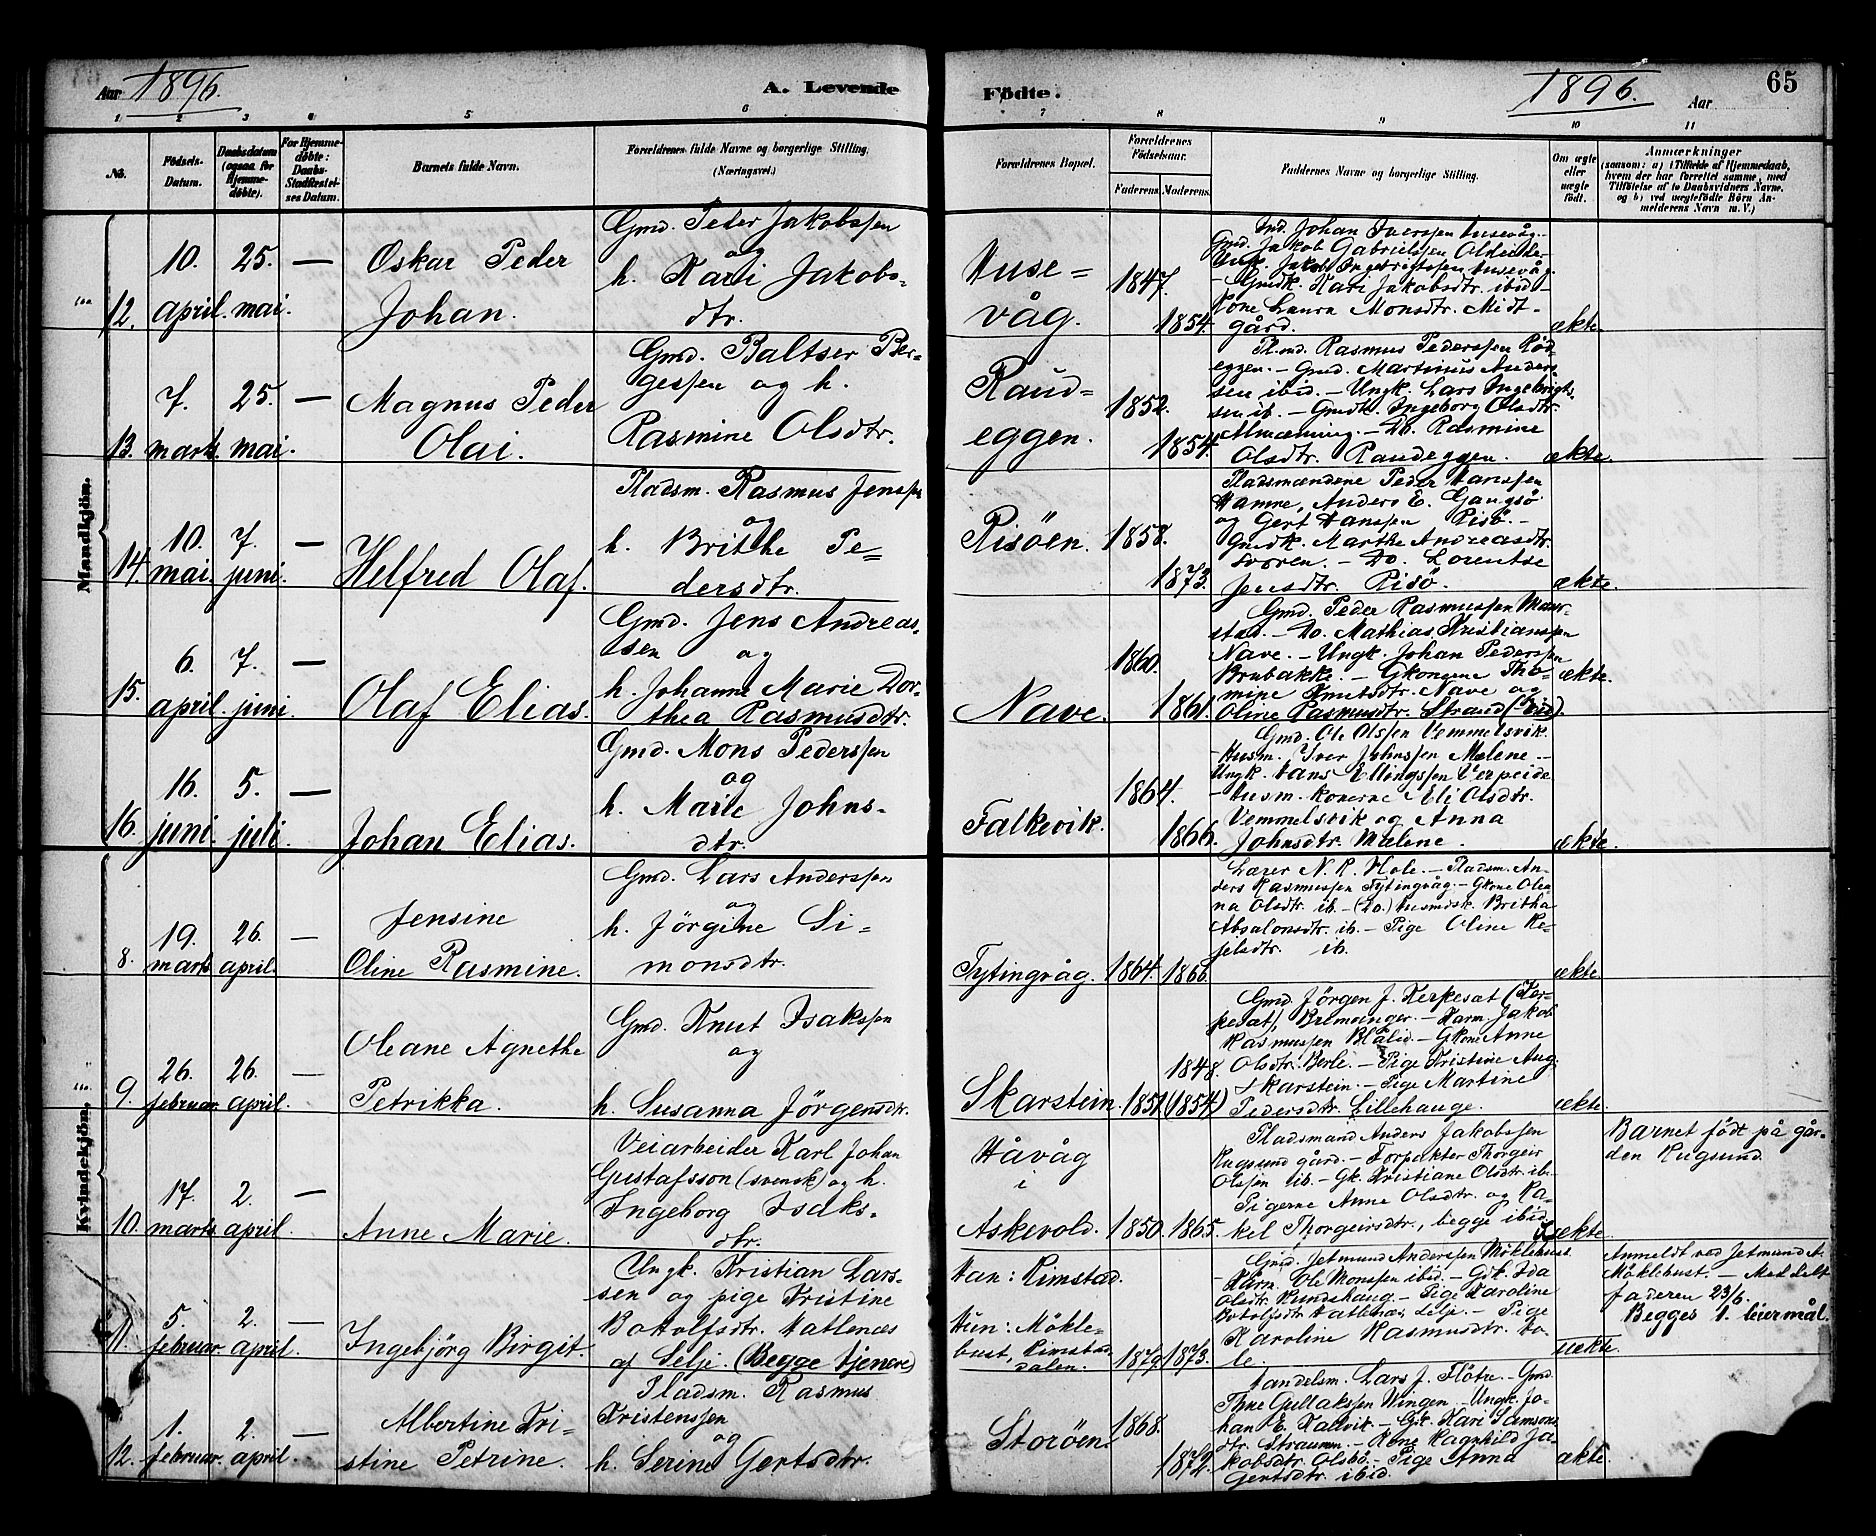 65
Aar 1896.
A. Levende
Fødte.
1896. Aar
1 2 3 4 5 6 7 8 9 10 11
No.
Fødsels-
Datum.
Daabsdatum
(ogsaa for
Hjemme-
døbte).
For Hjemme-
døbte:
Daabs-
Stadfæstel-
ses Datum.
Barnets fulde Navn.
Forældrenes fulde Navne og borgerlige Stilling.
(Næringsvei.)
Forældrenes Bopæl.
Forældrenes
Fødselsaar.
Faderens. Moderens.
Faddernes Navne og borgerlige Stilling.
Om ægte
eller
uægte
født.
Anmærkninger
(saasom: a) i Tilfælde af Hjemmedaab,
hvem der har forrettet samme, med
Tilføielse af to Daabsvidners Navne,
og b) ved uægtefødte Børn An-
melderens Navn m. V.)
Mandkjön.
12.
10.
april.
25.
mai.
—
Oskar Peder
Johan.
Gmd. Peder Jakobssen
og
h. Kari Jakobs-
dtr.
Huse-
våg.
1847.
1854.
Ind. Johan Iverssen Husevåg.
Gmd. Jakob Gabrielssen
Ungk. Jakob Ingebrigtssen Husevåg
- Gmdk. Kari Jakobsdtr. ibid -
Kone Laura Monsdtr. Midt-
gård.
ækte.
13.
7.
marts.
25.
mai.
—
Magnus Peder
Olai.
Gmd. Baltser Ber-
gessen og h.
Rasmine Olsdtr.
Raud-
eggen.
1852.
1854.
Pl.md. Rasmus Pederssen Röd-
eggen. - Gmd. Martinius Anders-
sen ibid. - Ungk. Lars Ingebrigts-
sen ib. - Gmdk. Ingeborg Olsdtr.
Almenning. - Do. Rasmine
Olsdtr. Raudeggen.
ækte.
14.
10.
mai.
7.
juni.
—
Helfred Olaf.
Pladsm. Rasmus Jenssen
og
h. Brithe Pe-
dersdtr.
Risöen.
1858.
1873.
Pladsmændene Peder Hanssen
Hamne, Anders E. Gangsö
og Gert Hanssen Risö. -
Gmdk. Marthe Andreasdtr.
- Do. Lorentse
Jensdtr. Risö.
ækte.
15.
6.
april.
7.
juni.
—
Olaf Elias.
Gmd. Jens Andreas-
sen og
h. Johanne Marie Dor-
thea Rasmusdtr.
Nave.
1860.
1861.
Gmd. Peder Rasmussen Maur-
stad. - Do. Mathias Kristianssen
Nave. - Ungk. Johan Pederssen
Brubakke. - Gkonerne Tho-
mine Knutsdtr. Nave og
Oline Rasmusdtr. Strand (- Eid).
ækte.
16.
16.
juni.
5.
juli.
—
Johan Elias.
Gmd. Mons Pederssen
og
h. Marie Johns-
dtr.
Falkevik.
1864.
1866.
Gmd. Ole Olssen Vemmelsvik.
- Husm. Iver Johnssen Melene -
Ungk. Hans Ellingssen Verpeide
- Husm.konerne Eli Olsdtr.
Vemmelsvik og Anna
Johnsdtr. Melene.
ækte.
Kvindekjön.
8.
19.
marts
26.
april.
—
Jensine
Oline Rasmine.
Gmd. Lars Anderssen
og
h. Jörgine Si-
monsdtr.
Tytingvåg.
1864.
1866.
Lærer N. R. Hole. - Pladsm. An-
ders Rasmussen Tytingvåg. - Gkone Olea-
na Olsdtr. ib. - (Do.) Husmdsk. Britha
Absalonsdtr. ib. - Pige Oline
ib.
ækte.
9.
26.
februar.
26.
april.
—
Oleane Agnethe
Petrikka.
Gmd. Knut Isakssen
og
h. Susanna Jörgensdtr.
Skarstein.
1851.
1848.
(1854)
Gmd. Jörgen J. Kerkesat (Ker-
kesat), Bremanger. - Karm. Jakob
Rasmussen Blålid. - Gkone Anne
Olsdtr. Berle. - Pige Kristine Aug.
Skarstein. - Pige Martine
Pedersdtr. Lillehauge.
ækte.
10.
17.
marts.
2.
april.
—
Anne Marie.
Veiarbeider Karl Johan
Gustafsson (svensk) og h.
Ingeborg Isaks-
dtr.
Håvåg
i
Askevold.
1850.
1865.
Pladsmand Anders Jakobssen
Rugsund gård. - Forpakter Thorgeir
Olssen ib. - Gk. Kristiane Olsdtr. ib.
Pigerne Anne Olsdtr. og Ra-
kel Thorgeirsdtr., begge ibid.
ækte.
Barnet födt på går-
den Rugsund.
11.
5.
februar.
2.
april.
—
Ingebjörg Birgit.
Ungk. Kristian Lars-
sen og pige Kristine
Botolfsdtr. Hatlenes
af Selje. (Begge tjenere)
Han: Rimstad.
Hun: Mökle-
bust, Rimstad-
dalen.
1872.
1873.
Gmd. Jetmund Anderssen Möklebust.
- Karn. Ole Monssen ibid. - Gdk. Ida
Olsdtr. Rundehaug. - Pige Karoline
Botolfsdtr. Hatlenes, Selje. - Pige
Karoline Rasmusdtr. Ho-
le.
uækte.
Anmeldt ved Jetmund A.
Möklebust. - Meddelt
faderen 23/6.
Begges 1. leiermål.
12.
1.
februar.
2.
april.
—
Albertine Kri-
stine Petrine.
Pladsm. Rasmus
Kristenssen
og
h. Serine Gertsdtr.
Storöen.
1868.
1872.
Handelsm. Lars J. Flötre. - Gmd.
Gullakssen Ningen. - Ungk. Jo-
han E. Kallvik. - Gk. Kari Samsons-
dtr. Straumm. - Kone Ragnhild Ja-
kobsdtr. Olsbö. - Pige Anna
Gertsdtr. ibid.
ækte.